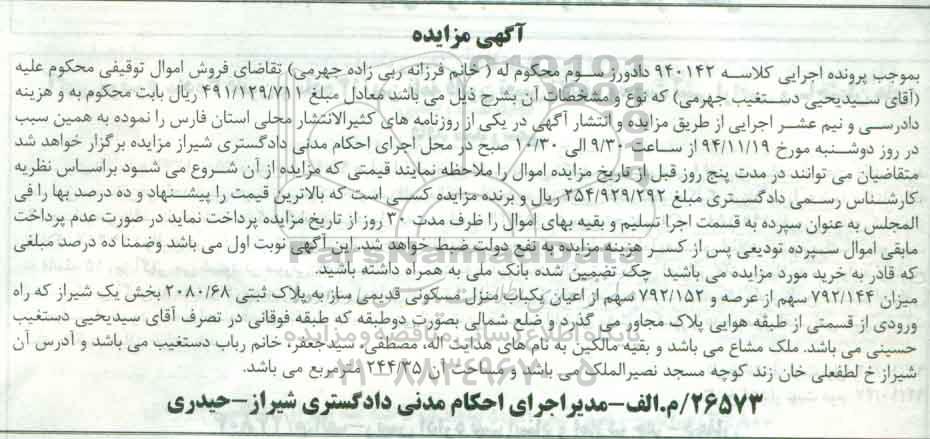 آگهی مزایده
بموجب پرونده اجرایی کلاسه ۹۴۰۱۴۲ دادورز سوم محکوم له ( خانم فرزانه ربی زاده جهرمی) تقاضای فروش اموال توقیفی محکوم علیه
(آقای سیدیحیی دستغیب جهرمی) که نوع و مشخصات آن بشرح ذیل می باشد معادل مبلغ ۴۹۱/۱۲۹/۷۱۱ ریال بابت محکوم به و هزینه
دادرسی و نیم عشر اجرایی از طریق مزایده و انتشار آگهی در یکی از روزنامه های کثیرالانتشار محلی استان فارس را نموده به همین سبب
در روز دوشنبه مورخ ۹۴/۱۱/۱۹ از ساعت ۹/۳۰ الی ۱۰/۳۰ صبح در محل اجرای احکام مدنی دادگستری شیراز مزایده برگزار خواهد شد
متقاضیان می توانند در مدت پنج روز قبل از تاریخ مزایده اموال را ملاحظه نمایند قیمتی که مزایده از آن شروع می شود براساس نظریه
کارشناس رسمی دادگستری مبلغ ۲۵۴/۹۲۹/۲۹۲ ریال و برنده مزایده کسی است که بالاترین قیمت را پیشنهاد و ده درصد بها را فی
المجلس به عنوان سپرده به قسمت اجرا تسلیم و بقیه بهای اموال را ظرف مدت ۳۰ روز از تاریخ مزایده پرداخت نماید در صورت عدم پرداخت
مابقی اموال سپرده تودیعی پس از کسر هزینه مزایده به نفع دولت ضبط خواهد شد. این آگهی نوبت اول می باشد وضمنا ده درصد مبلغی
که قادر به خرید مورد مزایده می باشید چک تضمین شده بانک ملی به همراه داشته باشید.
میزان ۷۹۲/۱۴۴ سهم از عرصه و ۷۹۲/۱۵۲ سهم از اعیان یکباب منزل مسکونی قدیمی ساز به پلاک ثبتی ۲۰۸۰/۶۸ بخش یک شیراز که راه
ورودی از قسمتی از طبقه هوایی پلاک مجاور می گذرد و ضلع شمالی بصورت دوطبقه که طبقه فوقانی در تصرف آقای سیدیحیی دستغیب
حسینی می باشد. ملک مشاع می باشد و بقیه مالکین به نام های هدایت اله، مصطفی، سیدجعفر، خانم رباب دستغیب می باشد و آدرس آن
شیراز خ لطفعلی خان زند کوچه مسجد نصیرالملک می باشد و مساحت آن ۲۴۴/۳۵ مترمربع می باشد.
۲۶۵۷۳/م.الف-مدیراجرای احکام مدنی دادگستری شیراز-حیدری